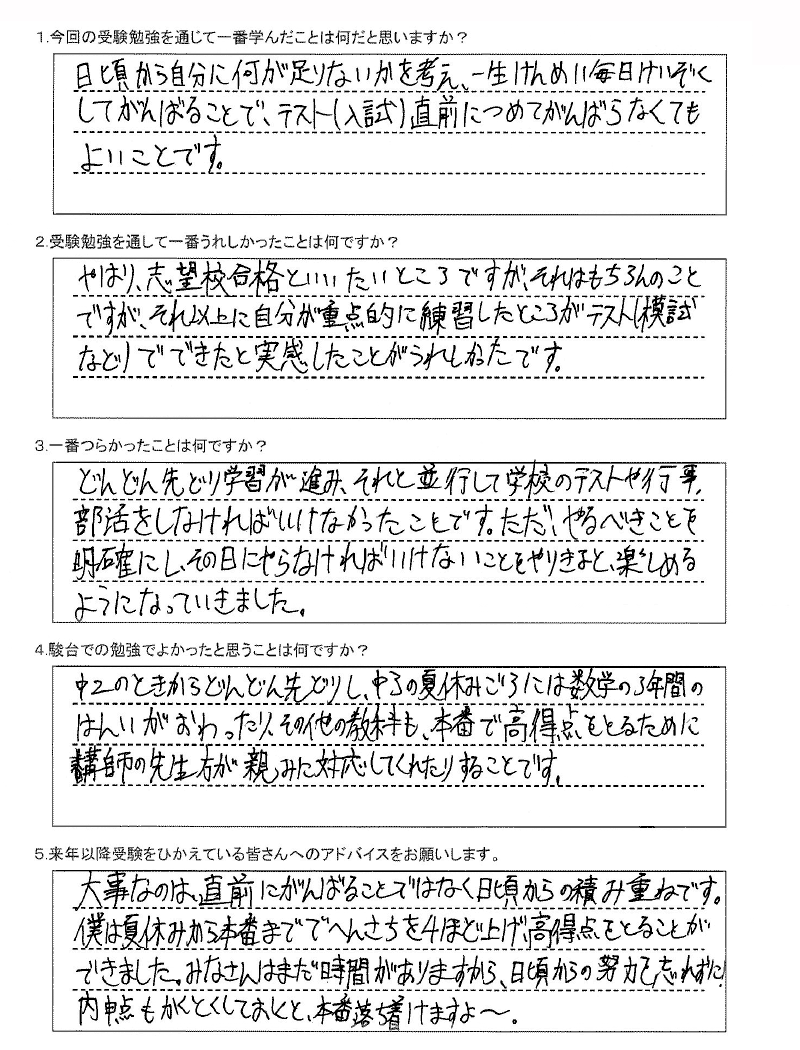 1.今回の受験勉強を通じて一番学んだことは何だと思いますか？
日頃から自分に何が足りないかを考え、一生けんめい毎日けいぞく
してがんばることで、テスト(入試)直前につめてがんばらなくても
よいことです。
2.受験勉強を通して一番うれしかったことは何ですか？
やはり、志望校合格といいたいところですが、それはもちろんのこと
ですが、それ以上に自分が重点的に練習したところがテスト(模試
など)でできたと実感したことがうれしかったです。
3.一番つらかったことは何ですか？
どんどん先どり学習が進み、それと並行して学校のテストや行事、
部活をしなければいけなかったことです。ただ、やるべきことを
明確にし、その日にやらなければいけないことをやりきると、楽しめる
ようになっていきました。
4.駿台での勉強でよかったと思うことは何ですか？
中2のときからどんどん先どりし、中3の夏休みごろには数学の3年間の
はんいがおわったり、その他の教科も、本番で高得点をとるために
講師の先生方が親みに対応してくれたりすることです。
5.来年以降受験をひかえている皆さんへのアドバイスをお願いします。
大事なのは、直前にがんばることではなく日頃からの積み重ねです。
僕は夏休みから本番まででへんさちを4ほど上げ、高得点をとることが
できました。みなさんはまだ時間がありますから、日頃からの努力を忘れずに！
内申点もかくとくしておくと、本番落ち着けますよ～。